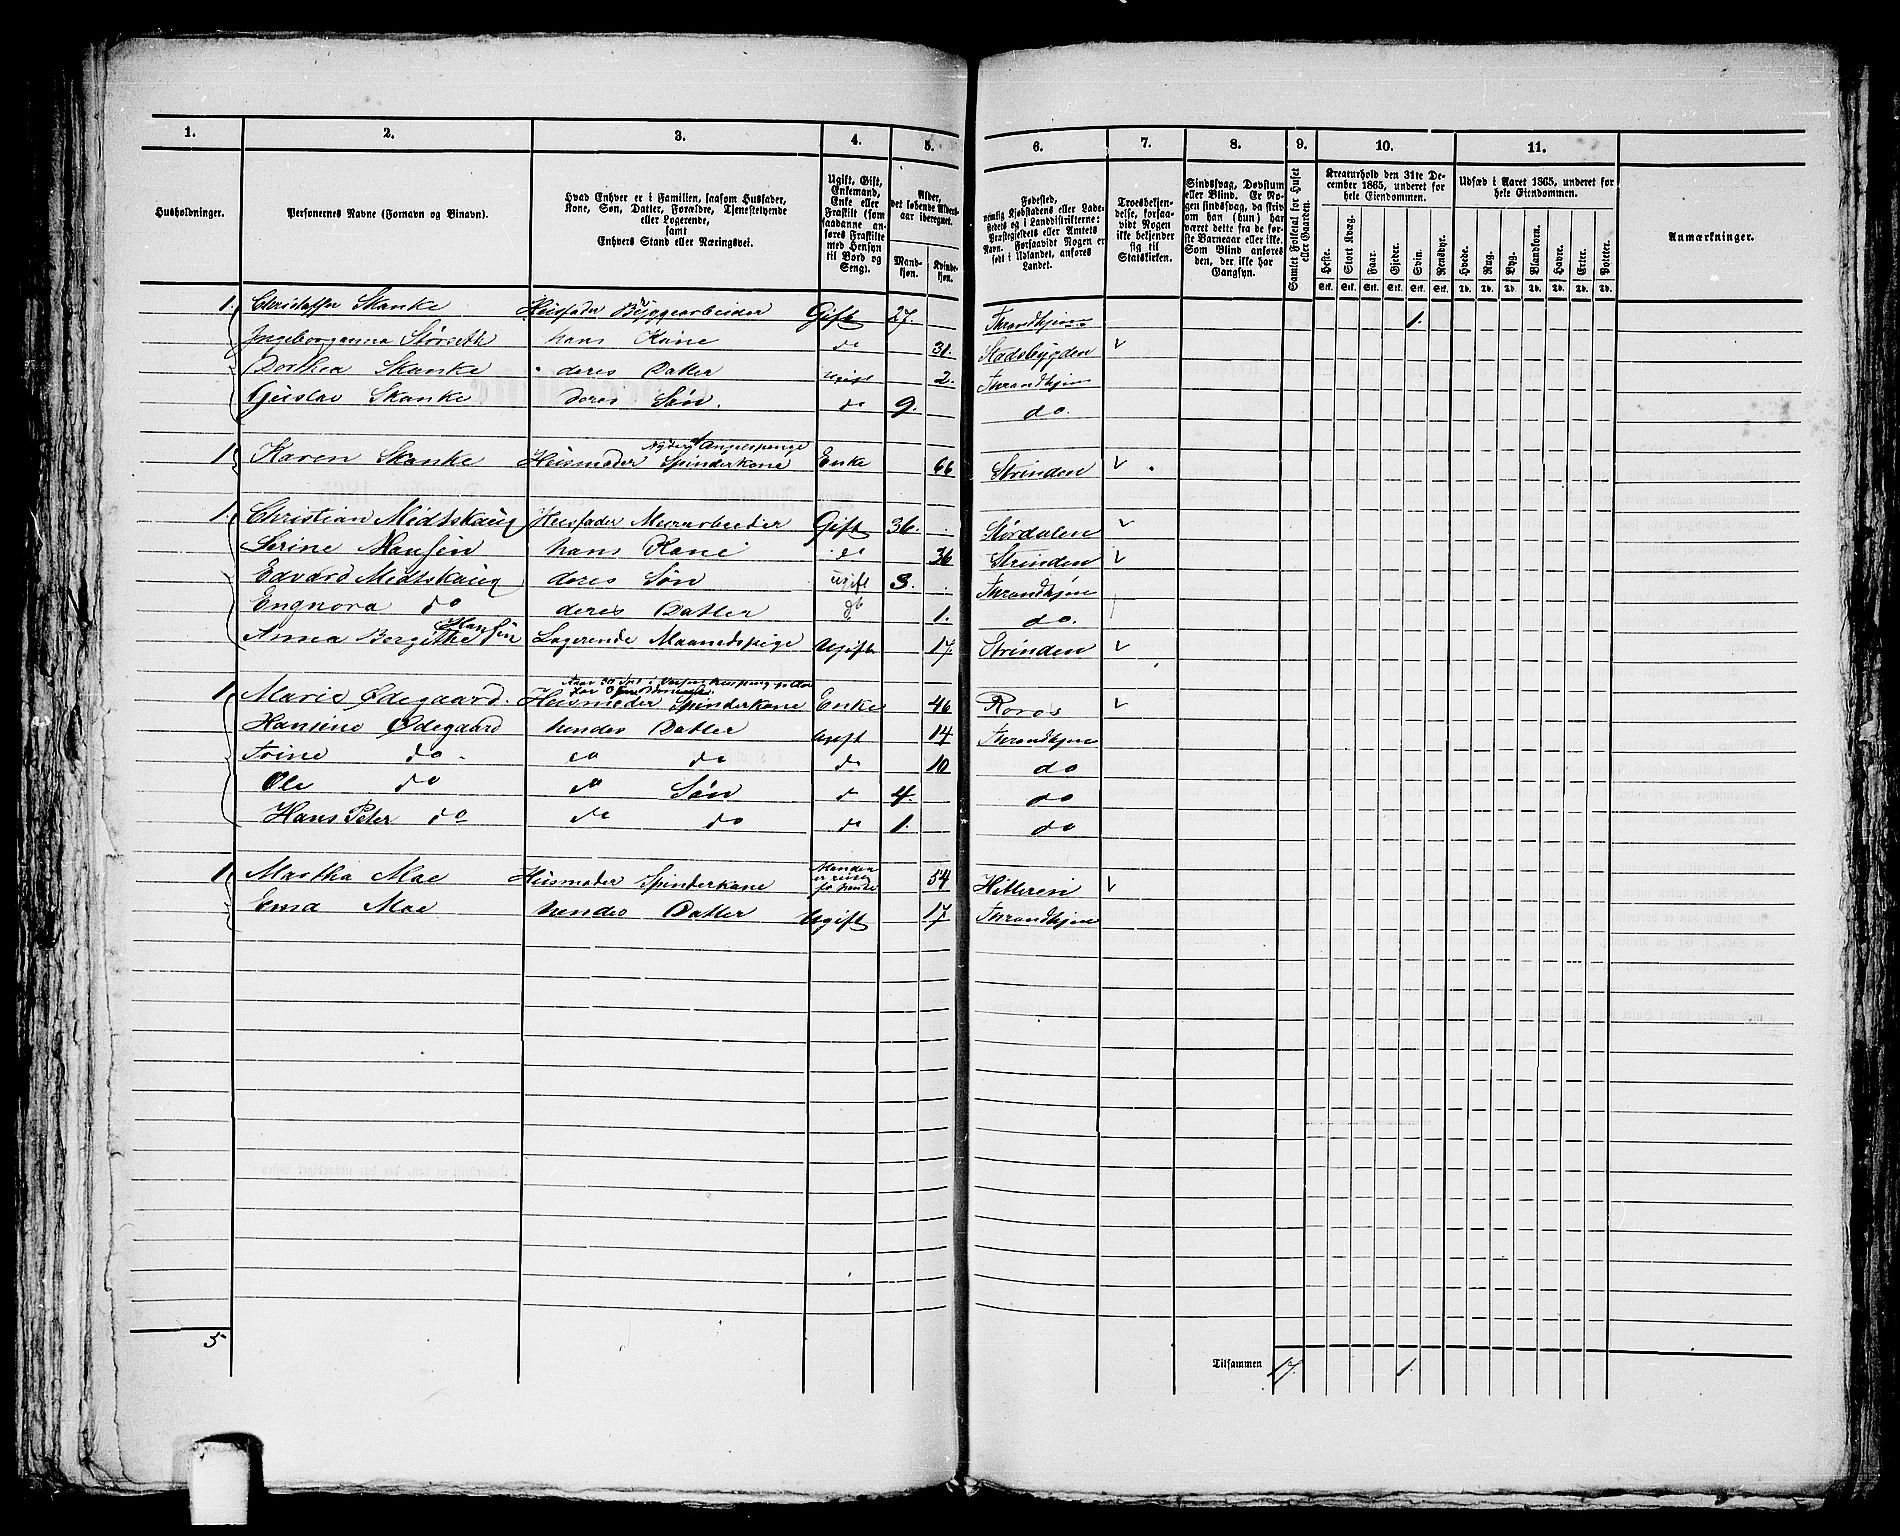 1. 2. 3. 4. 5. 6. 7. 8. 9. 10. 11.
Husholdninger.
Personernes Navne (Fornavn og Binavn).
Hvad Enhver er i Familien, saasom Husfader,
Kone, Søn, Datter, Forældre, Tjenestetyende
eller Logerende,
samt
Enhvers Stand eller Næringsvei.
Ugift, Gift,
Enkemand,
Enke eller
Fraskilt (som
saadanne an-
føres Fraskilte
med Hensyn
til Bord og
Seng).
Alder,
det løbende Alders-
aar iberegnet.
Mand-
kjøn.
Kvinde-
kjøn.
Fødested,
nemlig Kjøbstadens eller Lade-
stedets og i Landdistrikterne:
Præstegjeldets eller Amtets
Navn. Forsaavidt Nogen er
født i Udlandet, anføres
Landet.
Troesbekjen-
delse, forsaa-
vidt Nogen
ikke bekjender
sig til
Statskirken.
Sindssvag, Døvstum
eller Blind. Er No-
gen sindssvag, da skriv
om han (hun) har
været dette fra de før-
ste Barneaar eller ikke.
Som Blind anføres
den, der ikke har
Gangsyn.
Samlet Folketal for Huset
eller Gaarden.
Kreaturhold den 31te De-
cember 1865, underet for
hele Eiendommen.
Heste. Stort Kvæg. Faar. Gjeder. Svin. Rensdyr.
Stk. Stk. Stk. Stk. Stk. Stk.
Udsæd i Aaret 1865, underet for
hele Eiendommen.
Hvede. Rug. Byg. Blandkorn. Havre. Erter. Poteter.
Td. Td. Td. Td. Td. Td. Td.
Anmærkninger.
1. Christoffer Skanke Huusfader Byggearbeider Gift 27. Throndhjem 1.
Ingeborganna Størseth hans Kone do 31. Stadsbygden
Dorthea Skanke deres Datter Ugift 2. Throndhjem
Gustav Skanke deres Søn. do 9. do.
1. Karen Skanke Huusmoder Spinderkone Enke 66 Strinden
1. Christian Midtskaug Huusfader Muurarbeider Gift 36. Størdalen
Serine Hansen hans Kone do 36 Strinden
Edvard Midtskaug deres Søn ugift 3. Throndhjem
Engnora do deres Datter do 1. do.
Anna Bergitthe Hansen Logerende Maanedspige Ugift 17. Strinden
1 Marie Ødegaard. Huusmoder Spinderkone Enke 46 Roros
Hansine Ødegaard hendes Datter Ugift 14 Throndhjem
Trine do do do do 10 do
Ole do do Søn do 4. do
Hans Peter do do do do 1. do
1 Martha Moe Huusmoder Spinderkone 54 Hitteren
Ema Moe hendes Datter Ugift 17 Throndhjem
5
Tilsammen 17. 1.